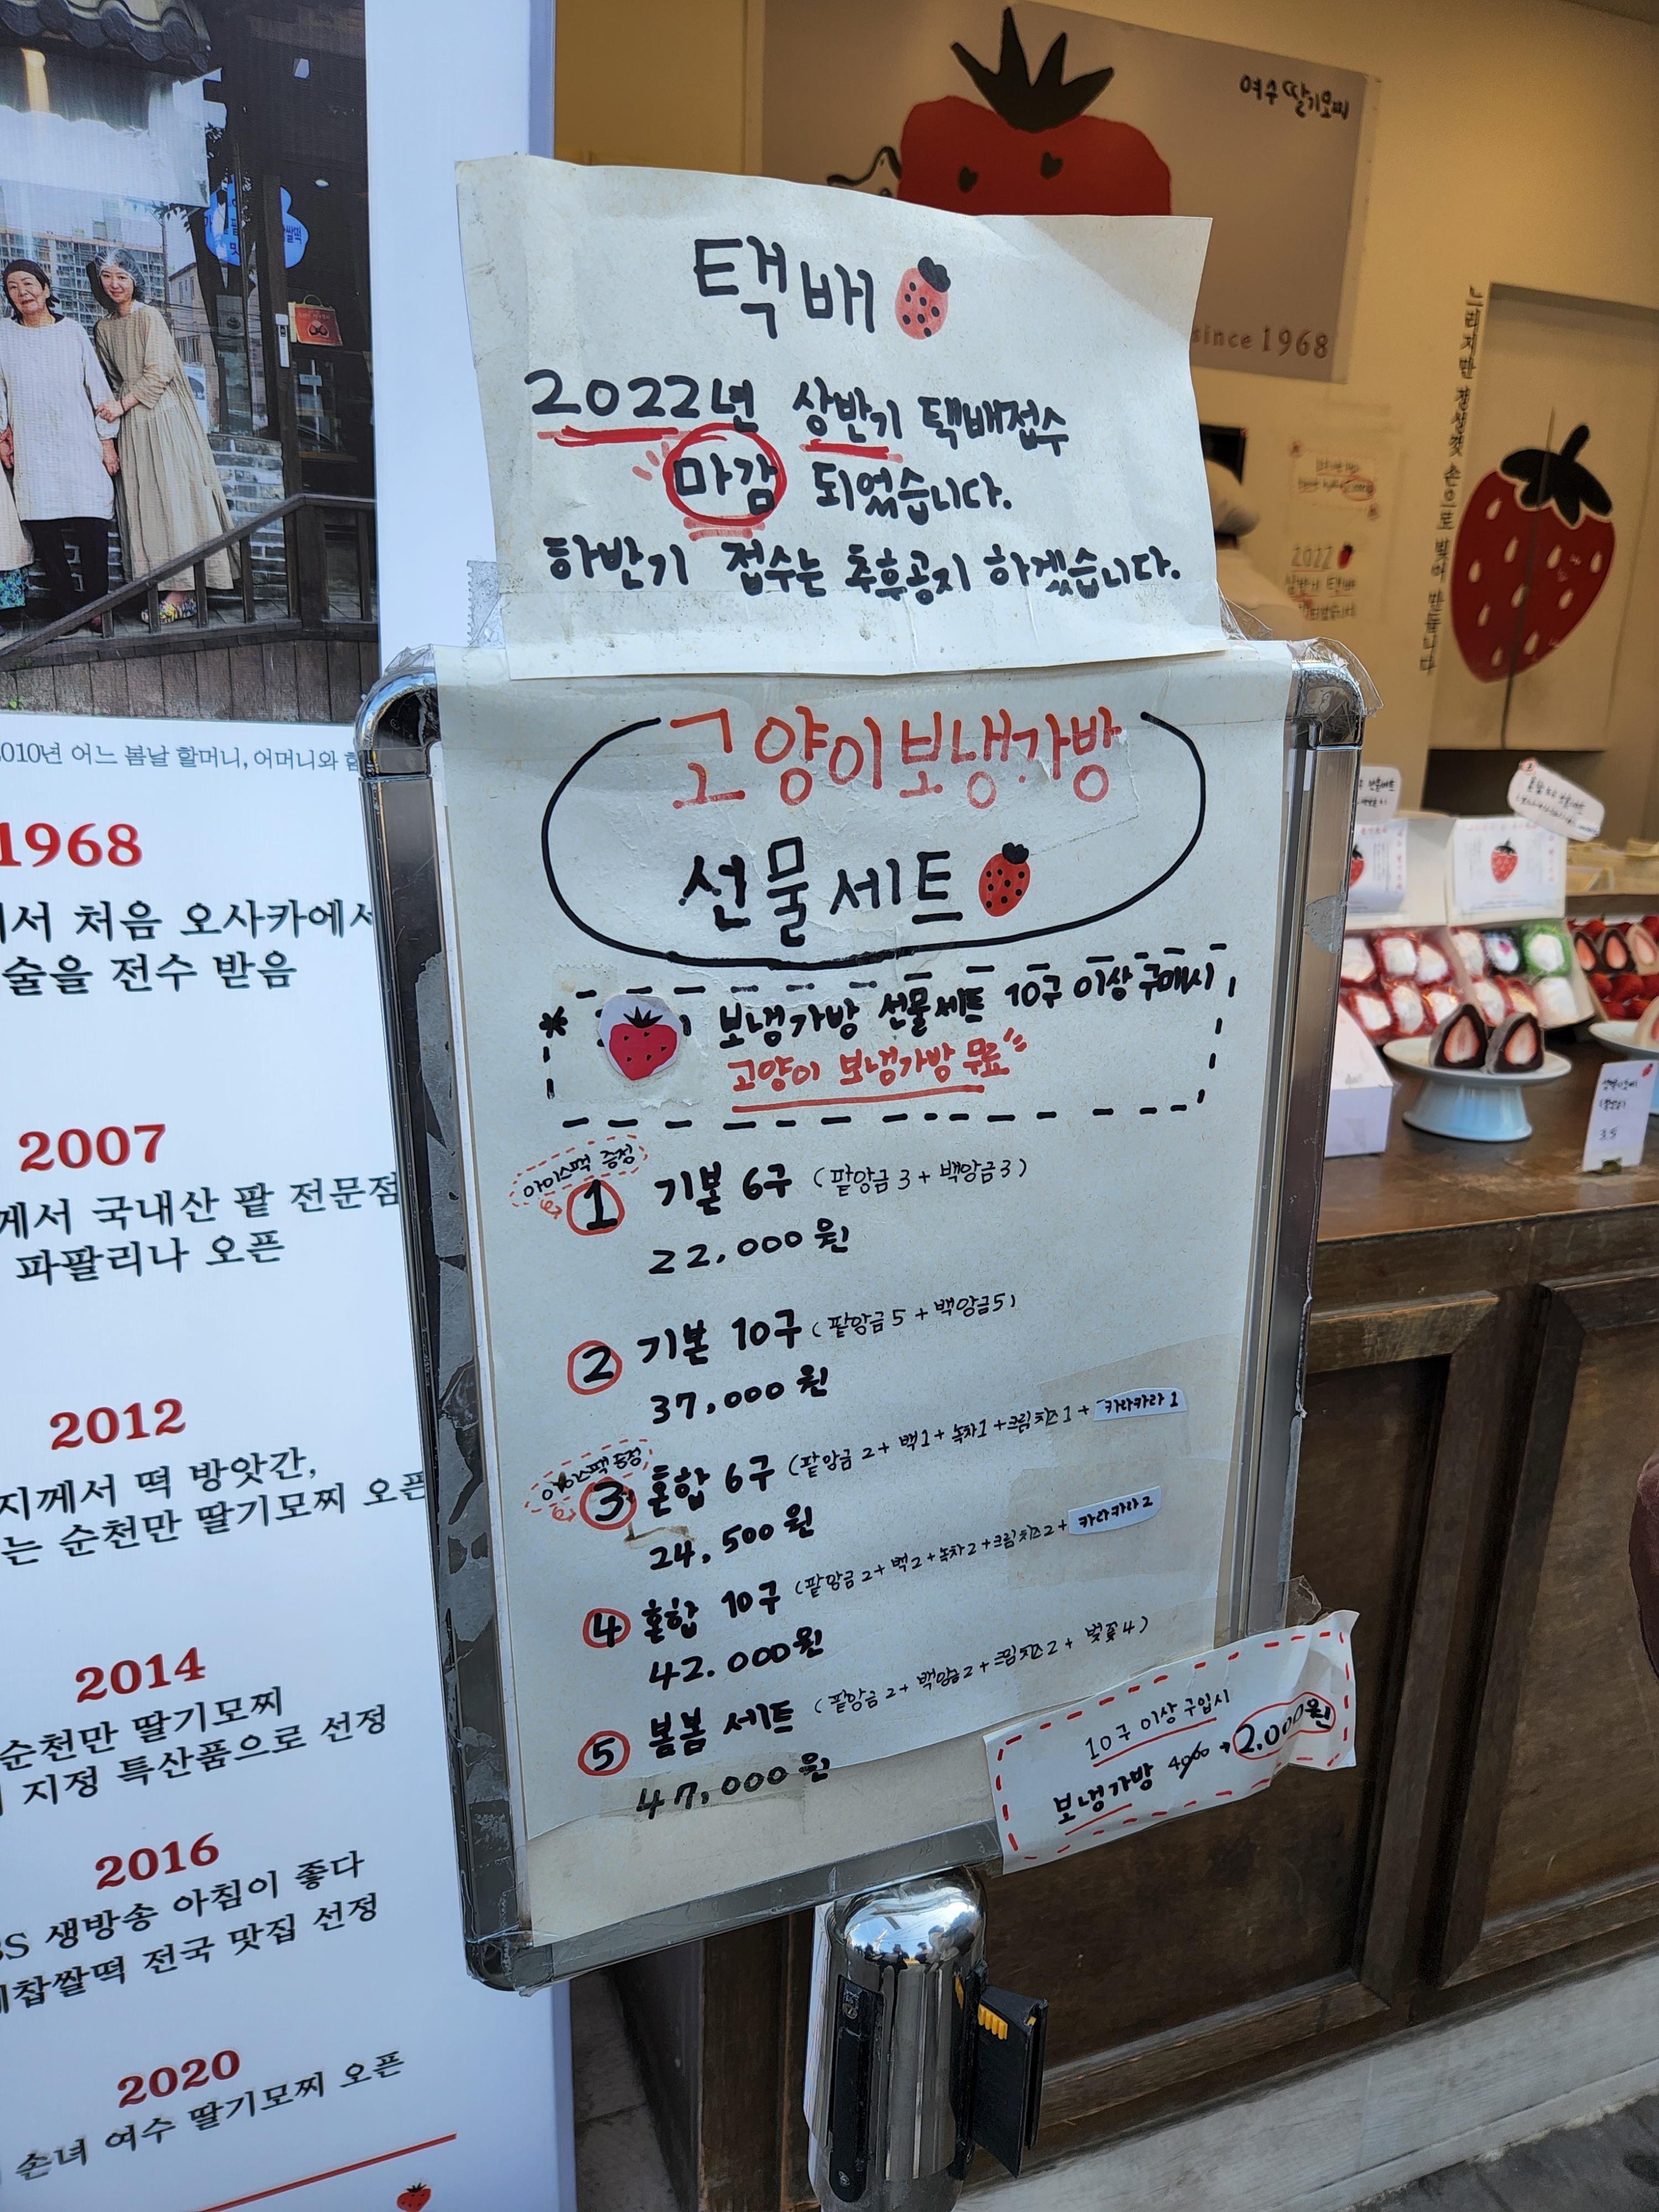 여수 딸기모찌
since 1968
느리지만 정성껏 손으로 빚어 만듭니다
택배
2022년 상반기 택배접수
마감 되었습니다.
하반기 접수는 추후공지 하겠습니다.
고양이보냉가방
선물세트
* 보냉가방 선물세트 10구 이상 구매시
고양이 보냉가방 무료
아이스팩 증정
1 기본 6구 (팥앙금3+백앙금3)
22,000원
2 기본 10구 (팥앙금5+백앙금5)
37,000원
아이스팩 증정
3 혼합 6구 (팥앙금2+백1+녹차1+크림치즈1+카라카라1
24,500원
4 혼합 10구 (팥앙금2+백2+녹차2+크림치즈2+카라카라2
42.000원
5 봄봄 세트 (팥앙금2+백앙금2+크림치즈2+벚꽃4)
47,000원
10구 이상 구입시
보냉가방 4000→2,000원
010년 어느 봄날 할머니, 어머니와
1968
서 처음 오사카에서
술을 전수 받음
2007
께서 국내산 팥 전문점
파팔리나 오픈
2012
지께서 떡 방앗간,
는 순천만 딸기모찌 오픈
2014
순천만 딸기모찌
지정 특산품으로 선정
2016
BS 생방송 아침이 좋다
찹쌀떡 전국 맛집 선정
2020
손녀 여수 딸기모찌 오픈
2022
상반기 택배
3.5